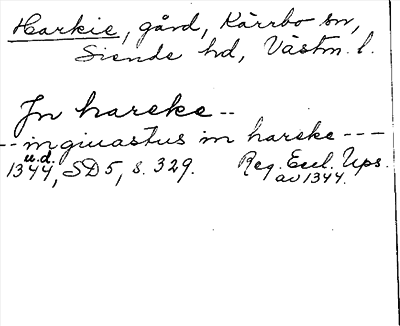 Harkie, gård, Kärrbo sn,
Siende hd, Västm. l.
In hareke --
-- ingiuastus in hareke ---
u.d.
1344, SD 5, s. 329. Reg. Eccl. Ups.
av 1344.